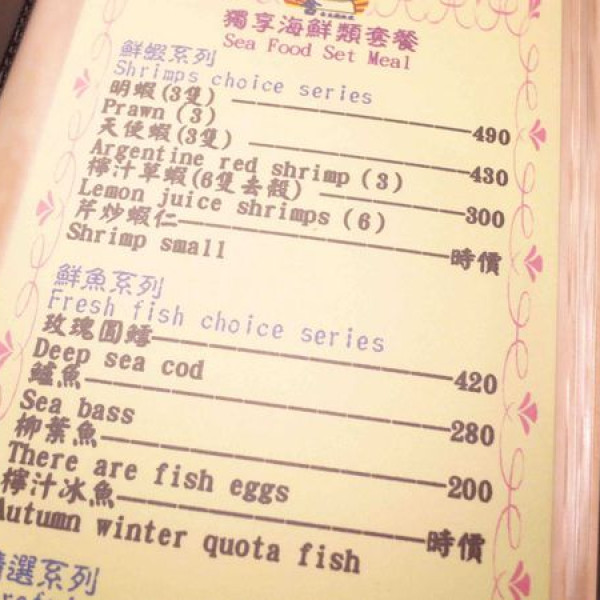 獨享海鮮類套餐
Sea Food Set Meal
鮮蝦系列
Shrimps choice series
明蝦(3隻) 490
Prawn (3)
天使蝦(3隻) 430
Argentine red shrimp (3)
檸汁草蝦(6隻去殼) 300
Lemon juice shrimps (6)
芹炒蝦仁 時價
Shrimp small
鮮魚系列
Fresh fish choice series
玫瑰圓鱈 420
Deep sea cod
鱸魚 280
Sea bass
柳葉魚 200
There are fish eggs
檸汁冰魚 時價
Autumn winter quota fish
選系列